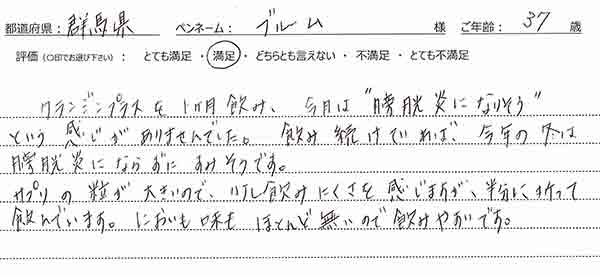 都道府県: 群馬県 ペンネーム: ブルーム 様 ご年齢: 37 歳
評価 (○印でお選び下さい) : とても満足 ・ 満足 ・ どちらとも言えない ・ 不満足 ・ とても不満足
クランジンプラスを1ヶ月飲み、今月は"膀胱炎になりそう"
という感じがありませんでした。飲み続けていれば、今年の冬は
膀胱炎にならずにすみそうです。
サプリの粒が大きいので、少し飲みにくさを感じますが、半分に折って
飲んでいます。においも味もほとんど無いので飲みやすいです。